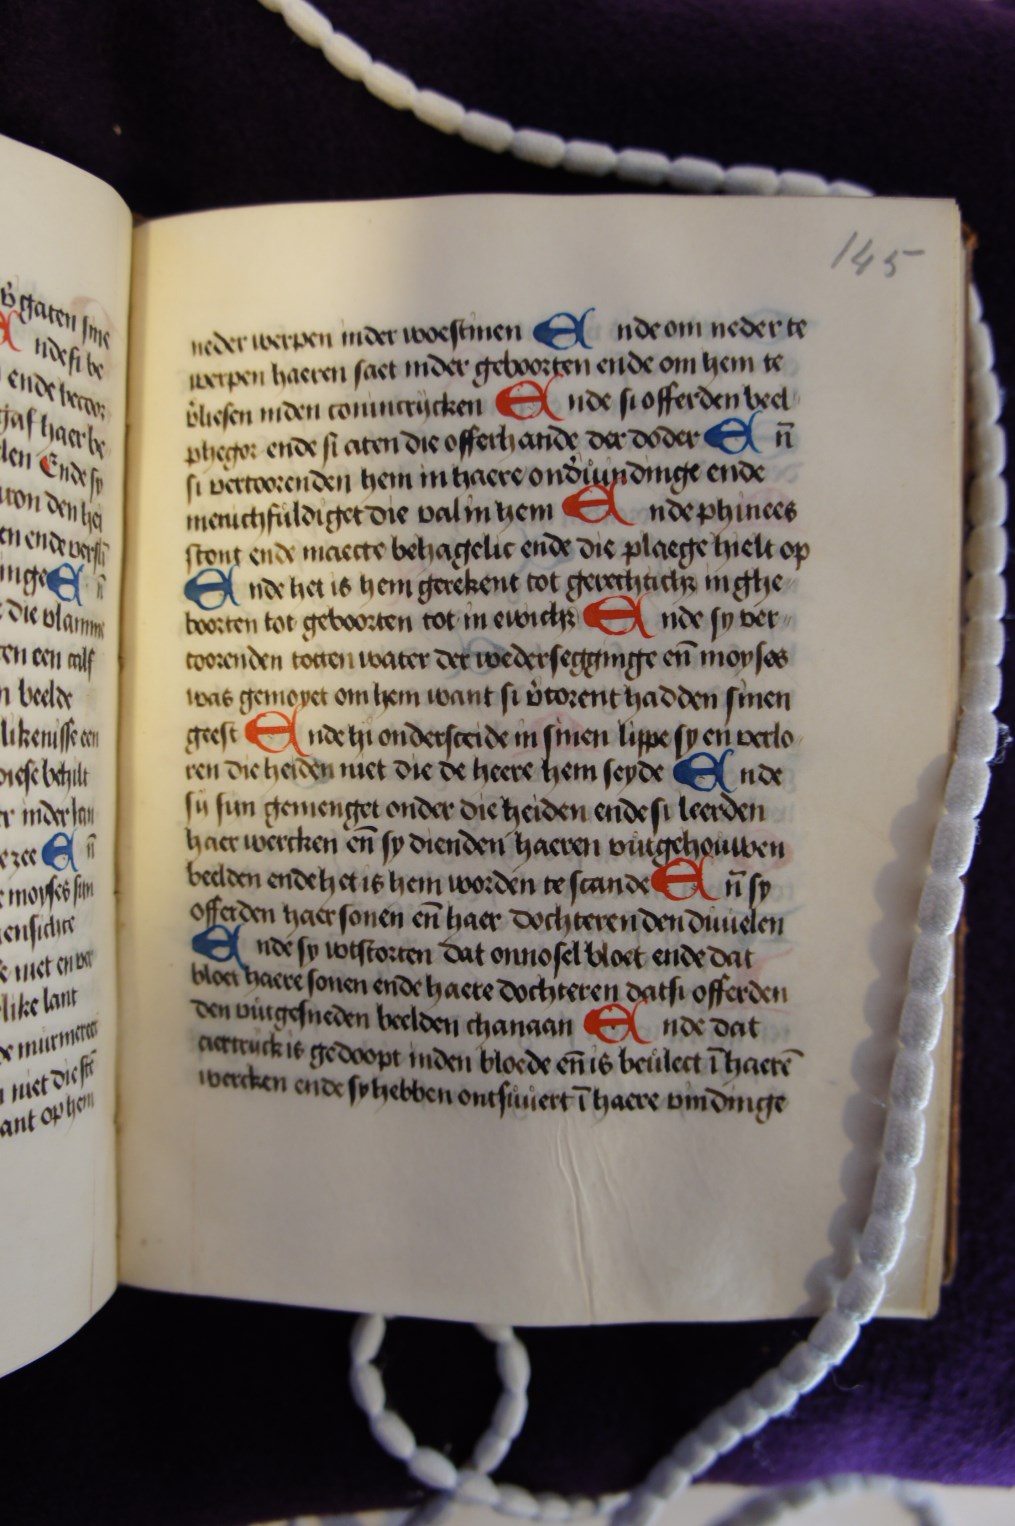 v̉gaten sine
nde si be
ende bector
gaf haer be
den Ende sy
ton den hei
en ende verslā
inge E n̄
die vlamme
en een calf
n beelde
likenisse een
diese behilt
r inder lan
ezee E n̄
moyses sijn
ensichte
niet en ver
like lant
de murmereer
niet die stē
ant op hem
145
neder werpen inder woestinen Ende om neder te
werpen haeren saet inder geboorten ende om hem te
v̉liesen inden conincrijcken Ende si offerden beel
phegor ende si aten die offerhande der doder En̄
si vertoorenden hem in haere ond̉vindinge ende
menichfuldiget die val in hem Ende phinees
stont ende maecte behagelic ende die plaege hielt op
Ende het is hem gerekent tot gerechtichz in ghe
boorten tot geboorten tot in ewichz Ende sy ver
toorenden totten water der wedersegginge en̄ moyses
was gemoyet om hem want si v̉torent hadden sinen
geest Ende hi ondersceide in sinen lippe sy en verlo
ren die heiden niet die de heere hem seyde Ende
sii sijn gemenget onder die heiden ende si leerden
haer wercken en̄ sy dienden haeren uutgehouwen
beelden ende het is hem worden te scande En̄ sy
offerden haer sonen en̄ haer dochteren den duvelen
Ende sy wtstorten dat onnosel bloet ende dat
bloet haere sonen ende haere dochteren dat si offerden
den uutgesneden beelden chanaan Ende dat
eertrijck is gedoopt inden bloede en̄ is bevlect ī haerē
wercken ende sy hebben ontsuvert ī haere vindinge